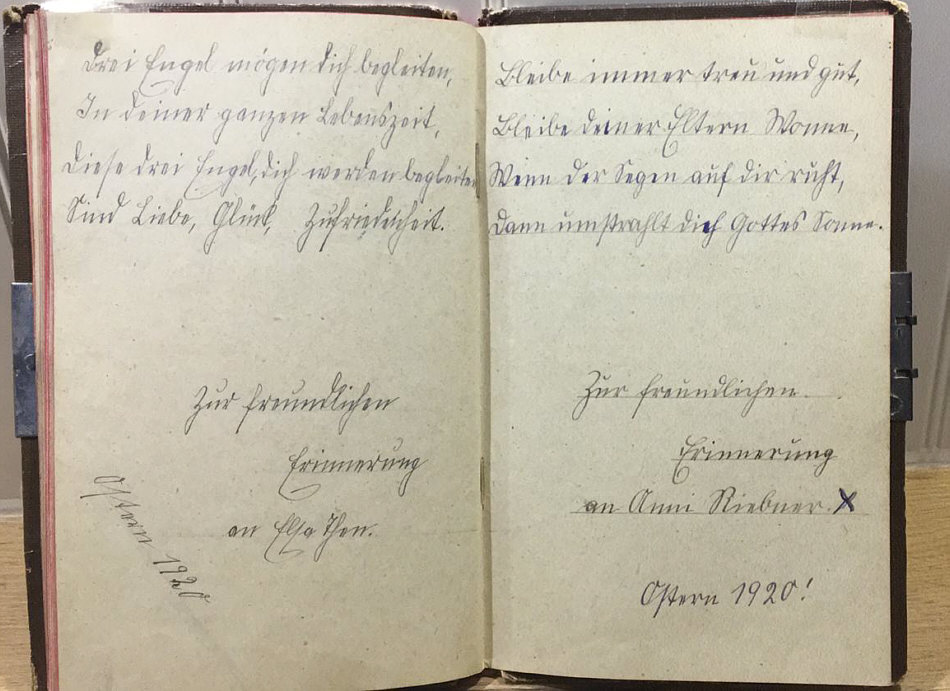 Drei Engel mögen dich begleiten,
In deiner ganzen Lebenszeit,
Diese drei Engel, dich werden begleiten
Sind Liebe, Glück, Zufriedenheit.
Zur freundlichen
Erinnerung
an Elsa Then.
Ostern 1920
Bleibe immer treu und gut,
Bleibe deiner Eltern Wonne,
Wenn der Segen auf dir ruht,
Dann umstrahlt dich Gottes Sonne.
Zur freundlichen
Erinnerung
an Anni Riebner. X
Ostern 1920!